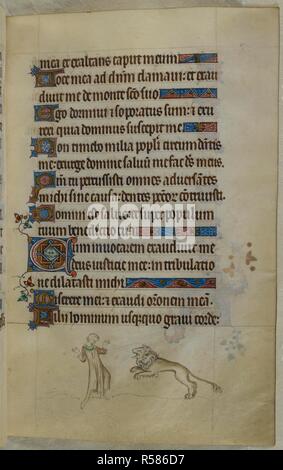 mea et exaltans caput meum
Voce mea ad dnm clamaui: et exau
diuit me de monte sco suo
Ego dormiui & soporatus sum: & exur
rexi quia dominus suscepit me
Non timebo milia popli circumdatis
me: exurge domine saluu me fac ds meus
Qm tu percussisti omnes aduersates
michi sine causa: dentes pctor contriuisti
Domini est salus: et super populum
tuum benedictio tua
Cum inuocarem exaudiuit me
deus iusticie mee: in tribulatio
ne dilatasti michi
Miserere mei: & exaudi oronem mea
Filii hominum usquequo graui corde:
alamy
Image ID: R586D7
www.alamy.com